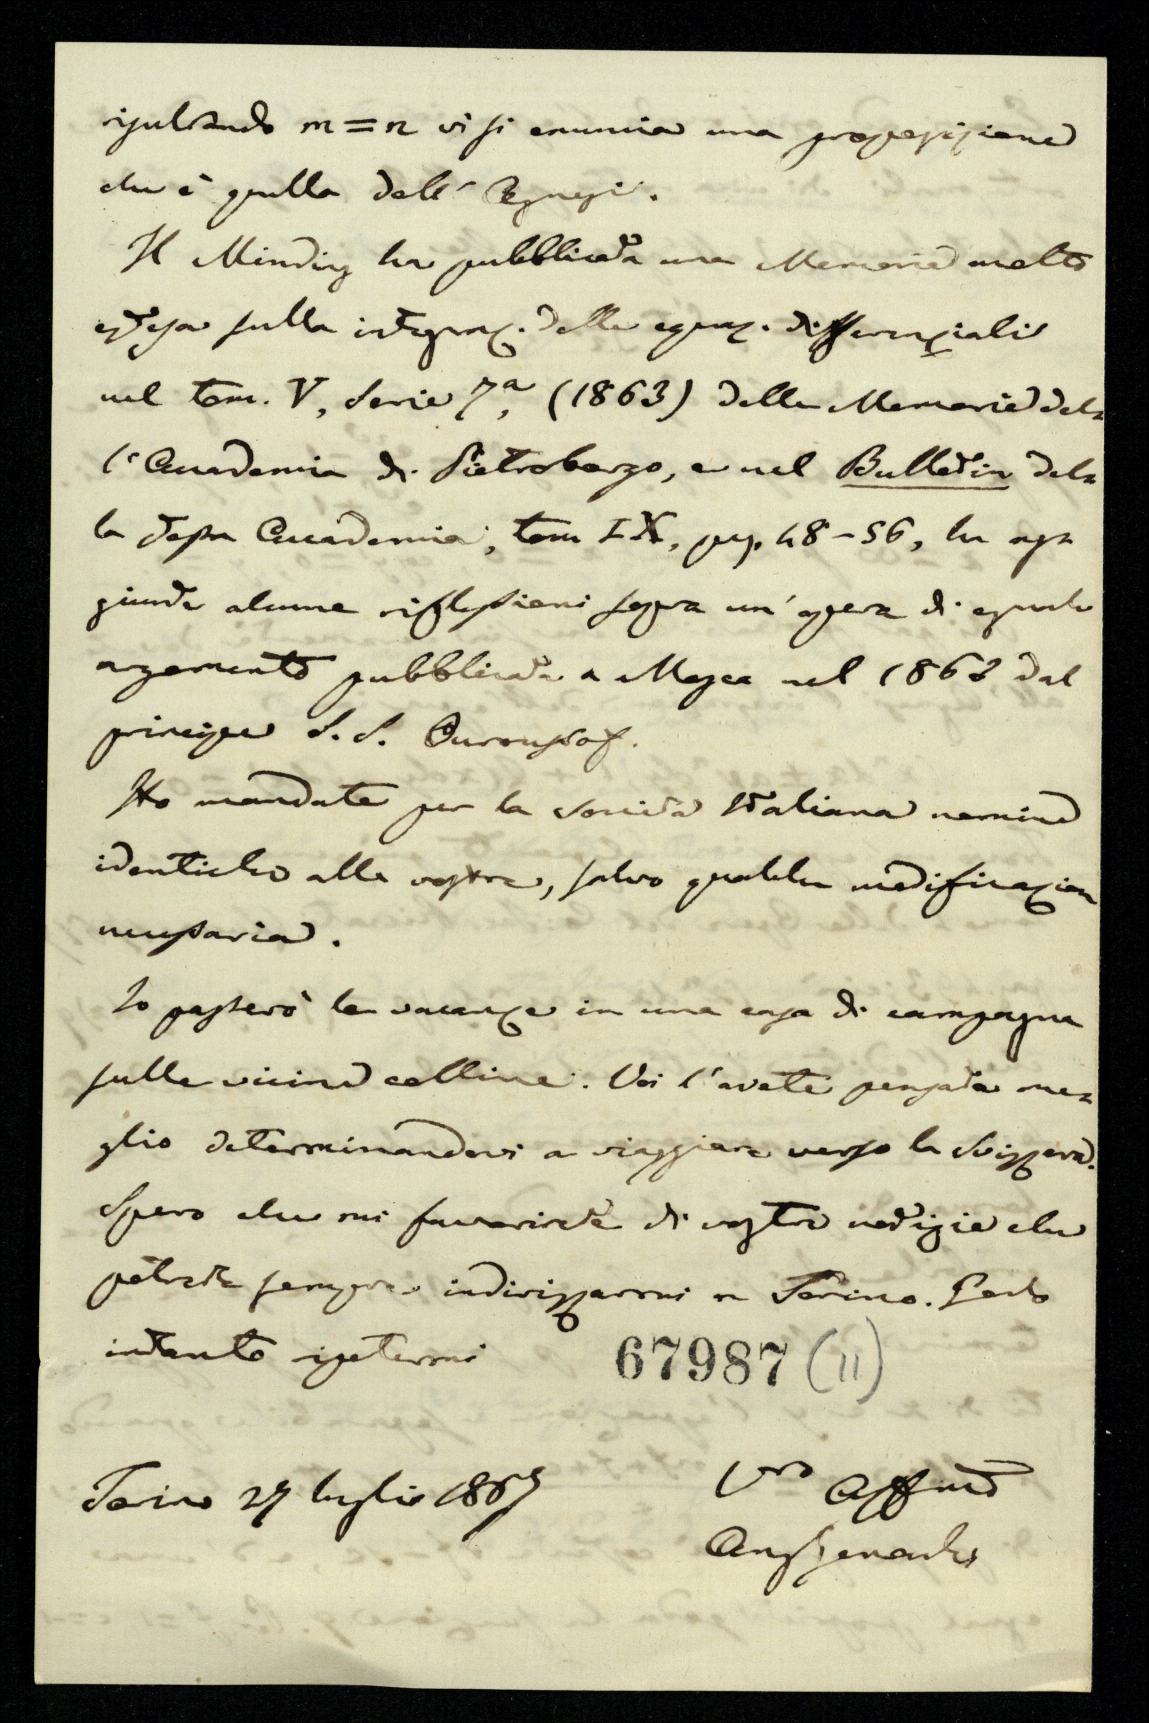 risultando m=n vi si enuncia una proposizione
che è quella dell'Agnesi.
Il Minding ha pubblicata una Memoria molto
estesa sulla integraz. delle equaz. differenziali
nel tom. V, Serie 7ª, (1863) delle Memorie del-
l'Accademia di Pietroborgo, e nel Bulletin del-
la stessa Accademia, tom IX, pag. 48-56, ha ag-
giunte alcune riflessioni sopra un'opera di eguale
argomento pubblicata a Mosca nel 1862 dal
principe S. S. Ouroussof.
Ho mandate per la Società Italiana nomine
identiche alle vostre, salvo qualche modificazion
necessaria.
Io passerò le vacanze in una casa di campagna
sulle vicine colline. Voi l'avete pensata me-
glio determinandovi a viaggiare verso la Svizzera.
Spero che mi favorirete di vostre notizie che
potrete sempre indirizzarmi a Torino. Godo
intanto ripetermi
67987 (11)
Torino 27 luglio 1867
Vro Affmo
Ang Genocchi